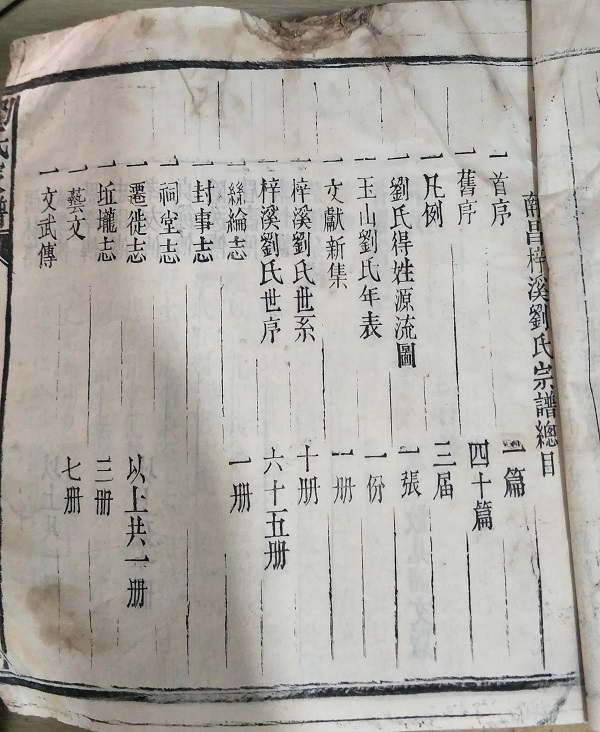 南昌梓溪劉氏宗譜總目
一首序 二篇
一舊序 四十篇
一凡例 三届
一劉氏得姓源流圖 一張
一玉山劉氏年表 一份
一文獻新集 一册
一梓溪劉氏世系 十册
一梓溪劉氏世序 六十五册
一絲綸志 一册
一封事志
一祠堂志
一遷徙志 以上共一册
一坵壠志
一藝文 二册
一文武傳 七册
劉氏宗譜